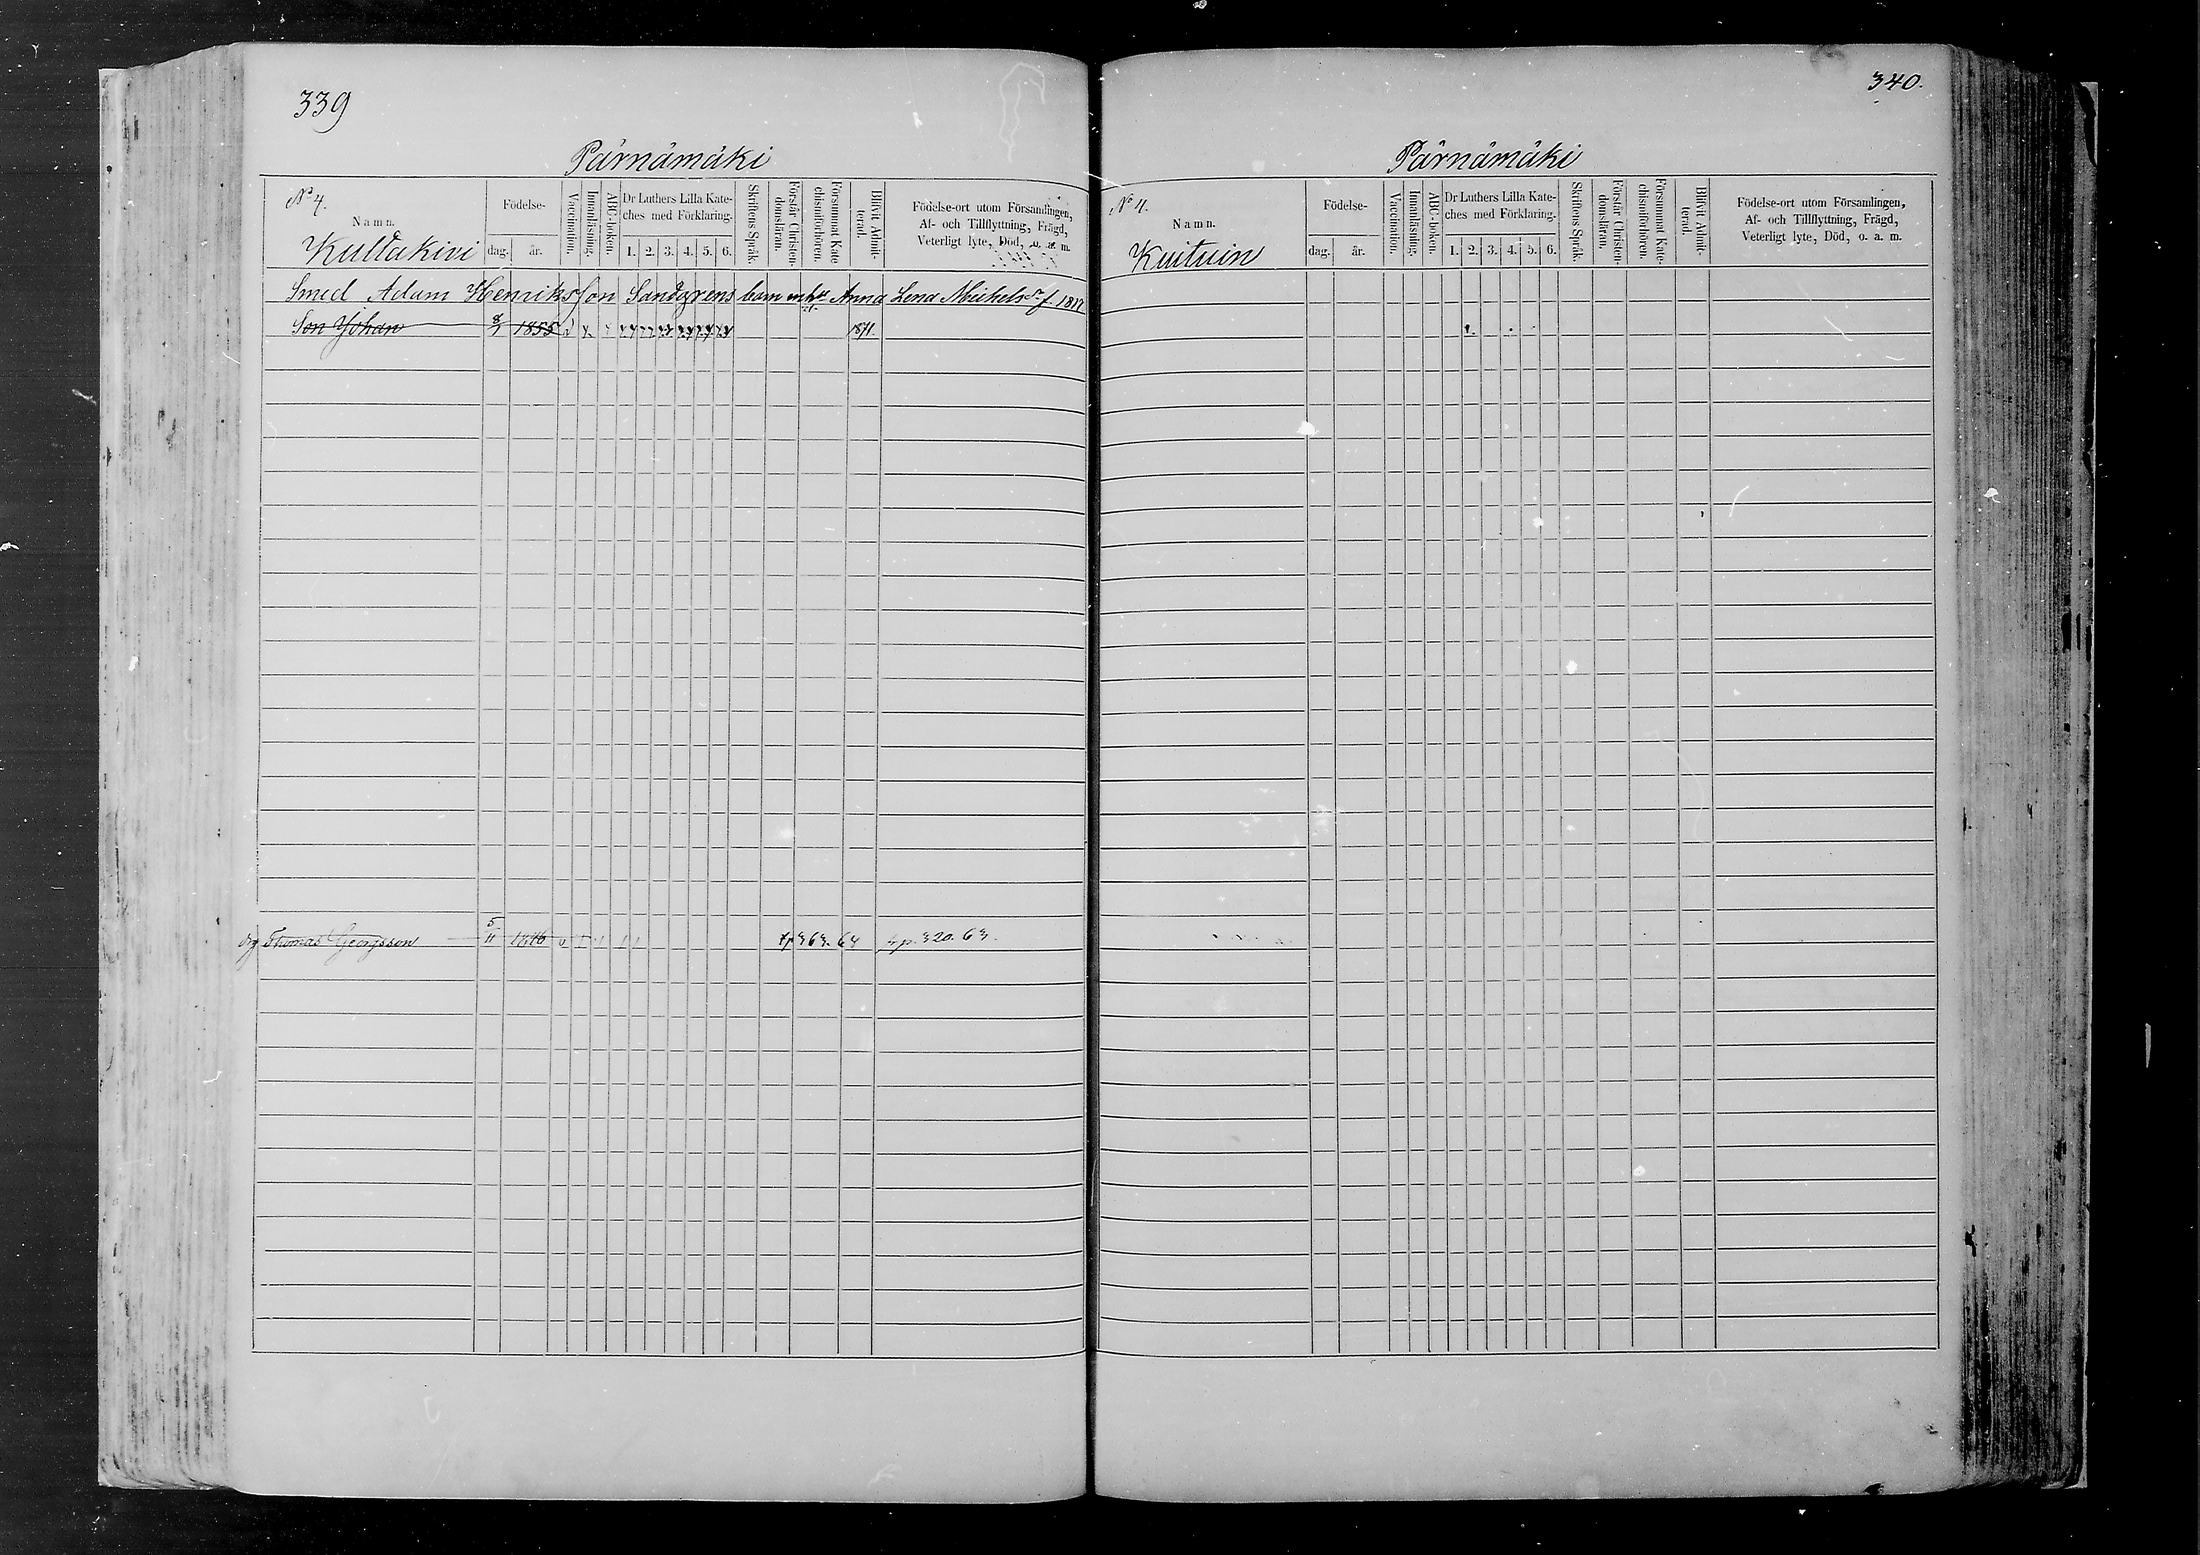 339
Pärnämäki
No 4.
Namn.
Kultakivi
Födelse-
dag. år.
Vaccination.
Innanläsning.
ABC-boken.
Dr Luthers Lilla Kate-
ches med Förklaring.
1. 2. 3. 4. 5. 6.
Skriftens Språk.
Förstår Christen-
domsläran.
Försummat Kate
chismiförhören.
Blivit Admit-
terad.
Födelse-ort utom Församlingen,
Af- och Tillflyttning, Frägd,
Veterligt lyte, Död, o. a. m.
Smed Adam Henriksson Sandgrens barn Anna Lena Michels f. 1817
Son Johan 8/1 1855 1871.
drg Thomas Georgsson 5/11 1846 fr p 363. 64 p. 320. 63.
340.
Pärnämäki
No 4.
Namn.
Kuituin
Födelse-
dag. år.
Vaccination.
Innanläsning.
ABC-boken.
Dr Luthers Lilla Kate-
ches med Förklaring.
1. 2. 3. 4. 5. 6.
Skriftens Språk.
Förstår Christen-
domsläran.
Försummat Kate-
chismiförhören.
Blivit Admit-
terad.
Födelse-ort utom Församlingen,
Af- och Tillflyttning, Frägd,
Veterligt lyte, Död, o. a. m.